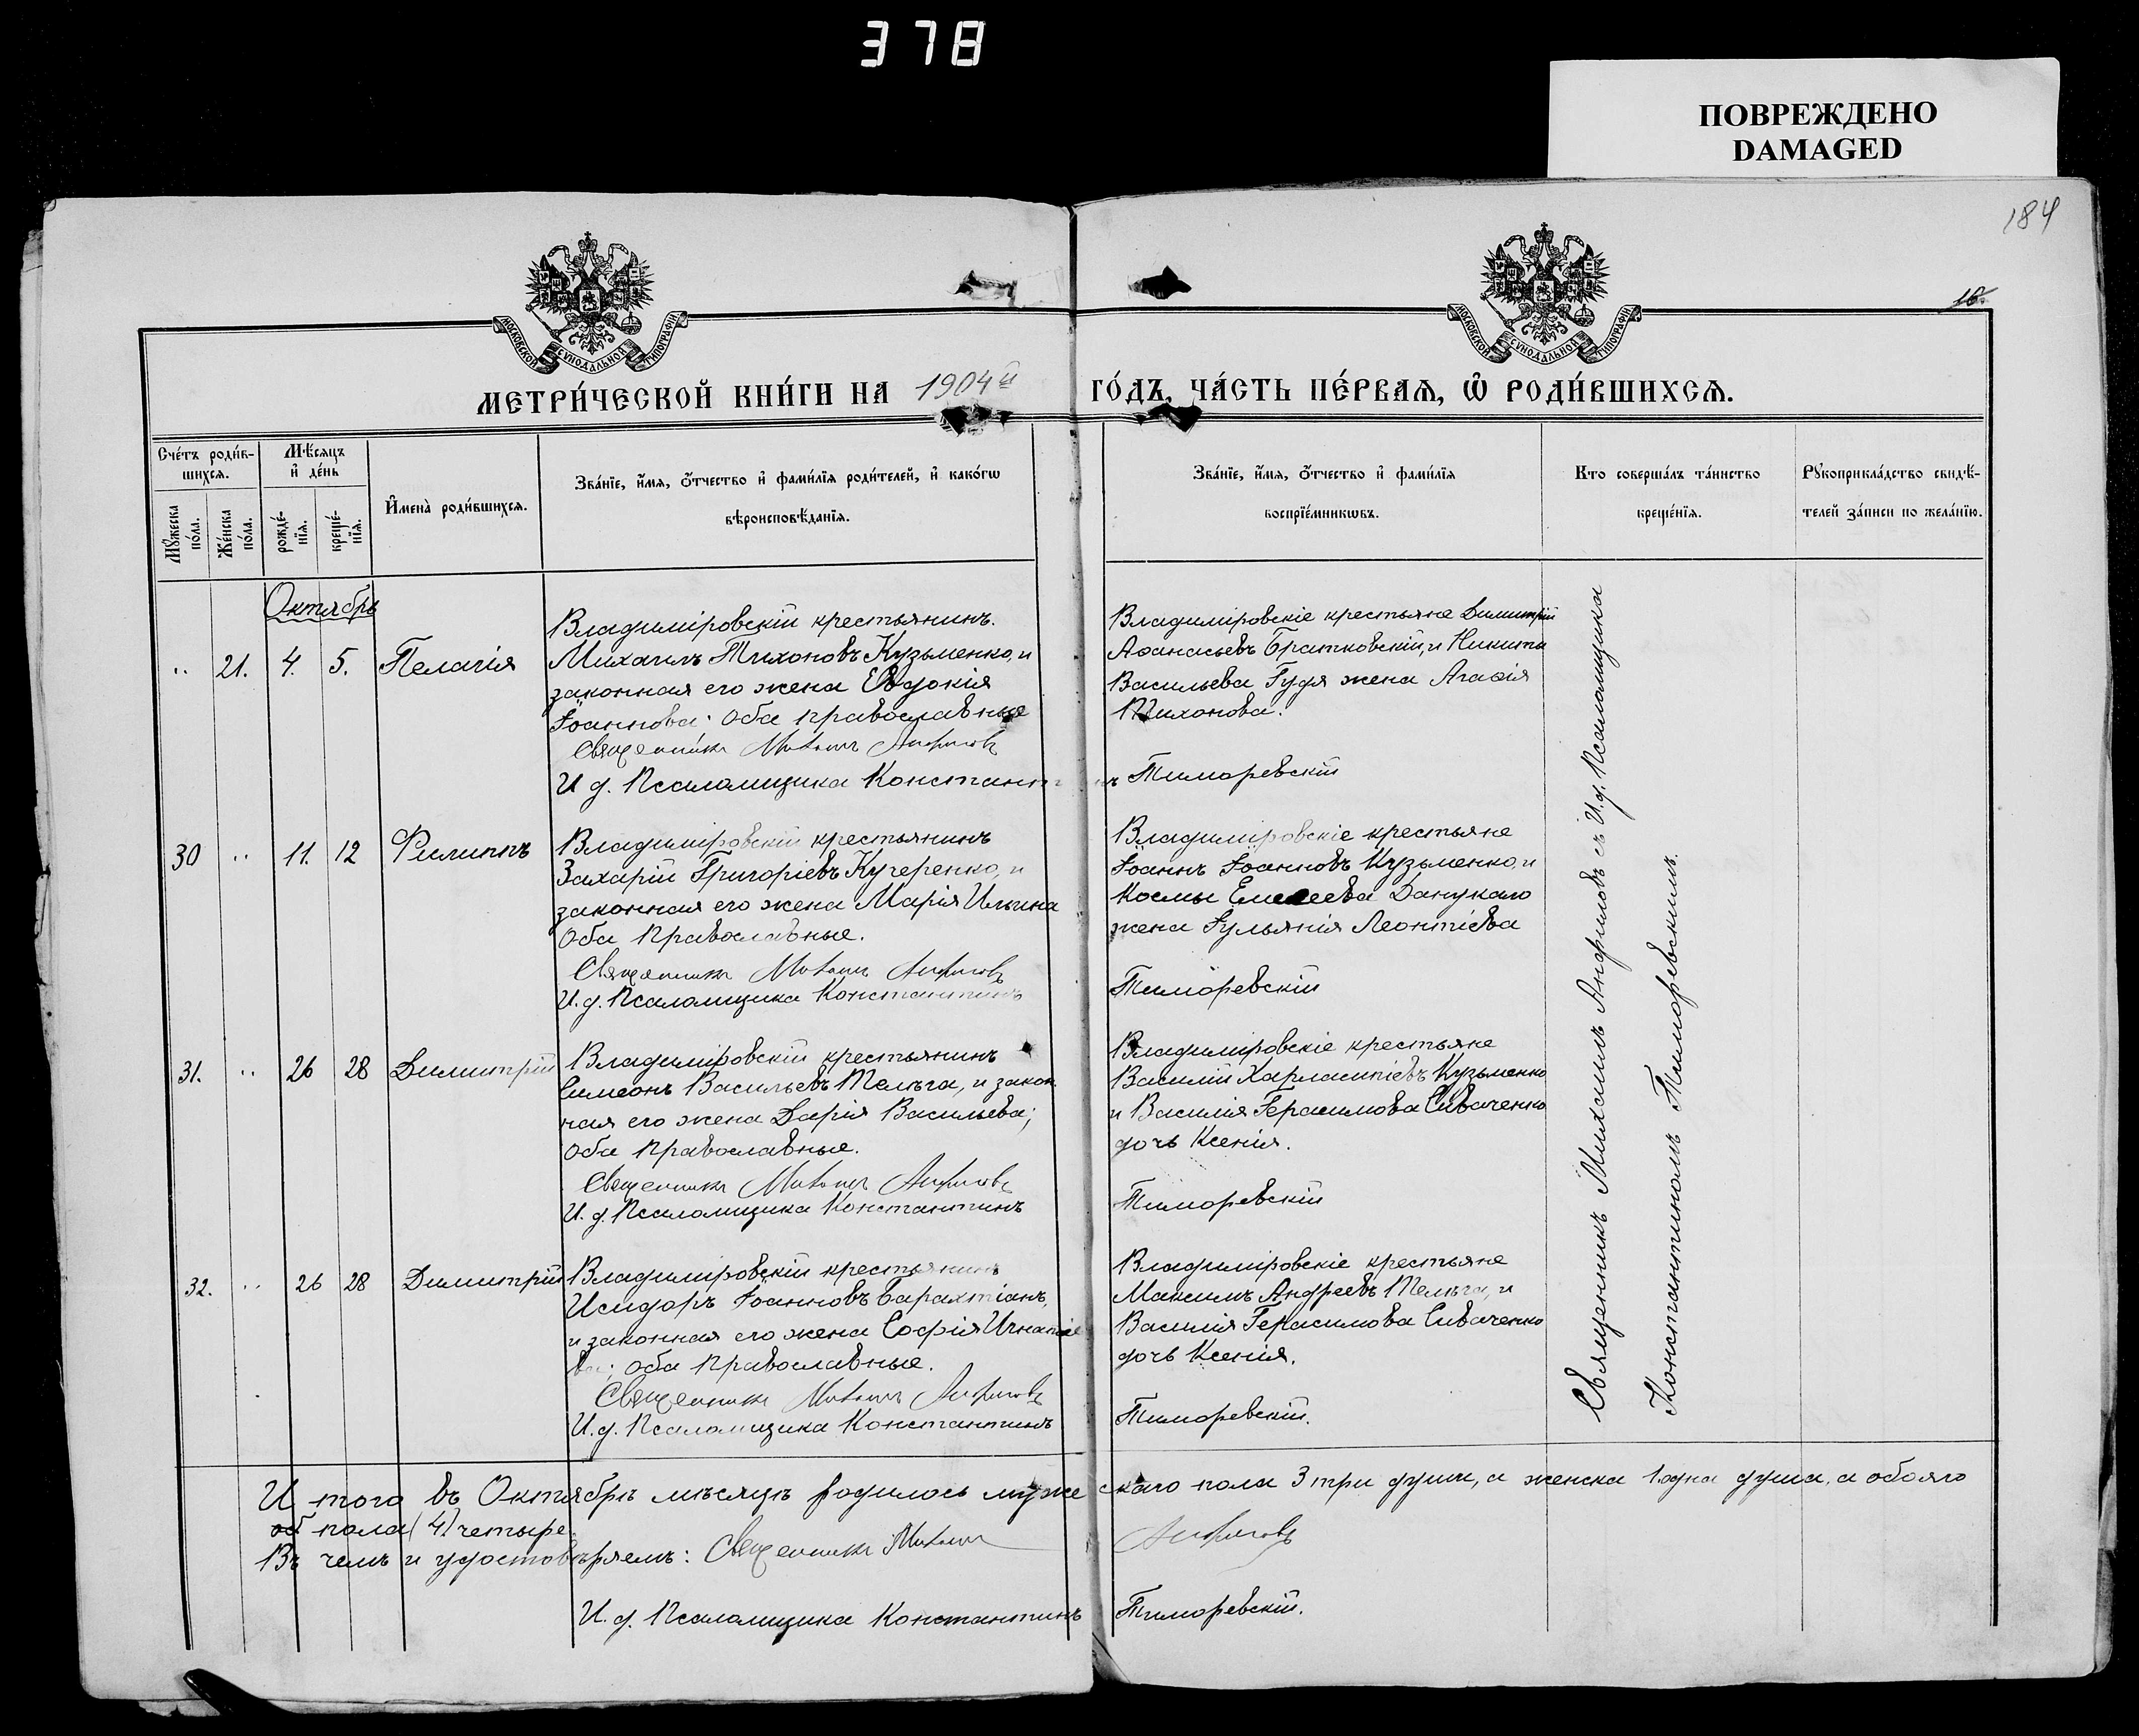 378
ПОВРЕЖДЕНО
DAMAGED
184
10.
МОСКОВСКОЙ СѴНОДАЛЬНОЙ ТИПОГРАФІИ
МОСКОВСКОЙ СѴНОДАЛЬНОЙ ТИПОГРАФІИ
МЕТРИ́ЧЕСКОЙ КНИ́ГИ НА 1904й ГО́ДЪ, ЧА́СТЬ ПЕ́РВАЯ, Ѡ҆ РОДИ́ВШИХСЯ.
Сче́тъ роди́в-
шихся.
Мꙋ́жеска по́ла.
Же́нска по́ла.
Мѣ́сяцъ
и҆ де́нь
рожде́-
нїя.
креще́-
нїя.
И҆мена̀ роди́вшихся.
Зва́нїе, и҆́мя, о҆́тчество и҆ фами́лїя роди́телей, и҆ како́гѡ
вѣроисповѣ́данїя.
Зва́нїе, и҆́мя, о҆́тчество и҆ фами́лїя
воспрїе́мникѡвъ.
Кто соверша́лъ та́инство
креще́нїя.
Рꙋкоприкла́дство свидѣ́-
телей за́писи по жела́нїю.
Октябрь
" 21. 4. 5. Пелагія
Владимíровскій крестьянинъ.
Михаилъ Тихоновъ Кузьменко, и
законная его жена Евдокія
Іоаннова; оба православные
Священникъ Михаилъ Анфиловъ
И. д. Псаломщика Константинъ
Владимировскіе крестьяне Димитрій
Аѳанасьевъ Братковскій, и Никиты
Васильева Гудя жена Агаѳія
Тихонова.
Тиморевскій
30 " 11. 12 Филиппъ
Владиміровскій крестьянинъ
Захарій Григоріевъ Кучеренко, и
законная его жена Марія Ильина
оба православные.
Священникъ Михаилъ Анфиловъ
И. д. Псаломщика Константинъ
Владиміровскіе крестьяне
Іоаннъ Іоанновъ Кузьменко, и
Космы Елисеева
жена Іульянія Леонтіева
Тиморевскій
31. " 26 28 Димитрій
Владиміровскій крестьянинъ
Симеонъ Васильевъ Тельга, и закон
ная его жена Дарія Васильева;
оба православные.
Священникъ Михаилъ Анфиловъ
И. д. Псаломщика Константинъ
Владиміровскіе крестьяне
Василій Харлампіевъ Кузьменко
и Василія Герасимова Сиваченко
дочь Ксенія.
Тиморевскій
32. " 26 28 Димитрій
Владиміровскій крестьянинъ
Исидоръ Іоанновъ Барахтіанъ,
и законная его жена Софія Игнатіе
ва; оба православные.
Священникъ Михаилъ Анфиловъ
И. д. Псаломщика Константинъ
Владиміровскіе крестьяне
Максимъ Андреевъ Тельга, и
Василія Герасимова Сиваченко
дочь Ксенія.
Тиморевскій.
Священникъ Михаилъ Анфиловъ съ И. д. Псаломщика
Константиномъ Тиморевскимъ.
И того въ Октябрѣ мѣсяцѣ родилось мужескаго пола 3 три души, а женска 1. одна душа, а обояго
пола (4) четыре
Въ чемъ и удостовѣряемъ: Священникъ Михаилъ Анфиловъ
И. д. Псаломщика Константинъ Тиморевскій.